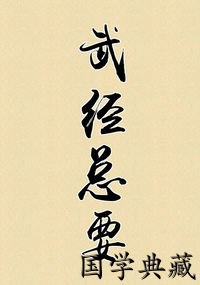 武经总要
国学典藏